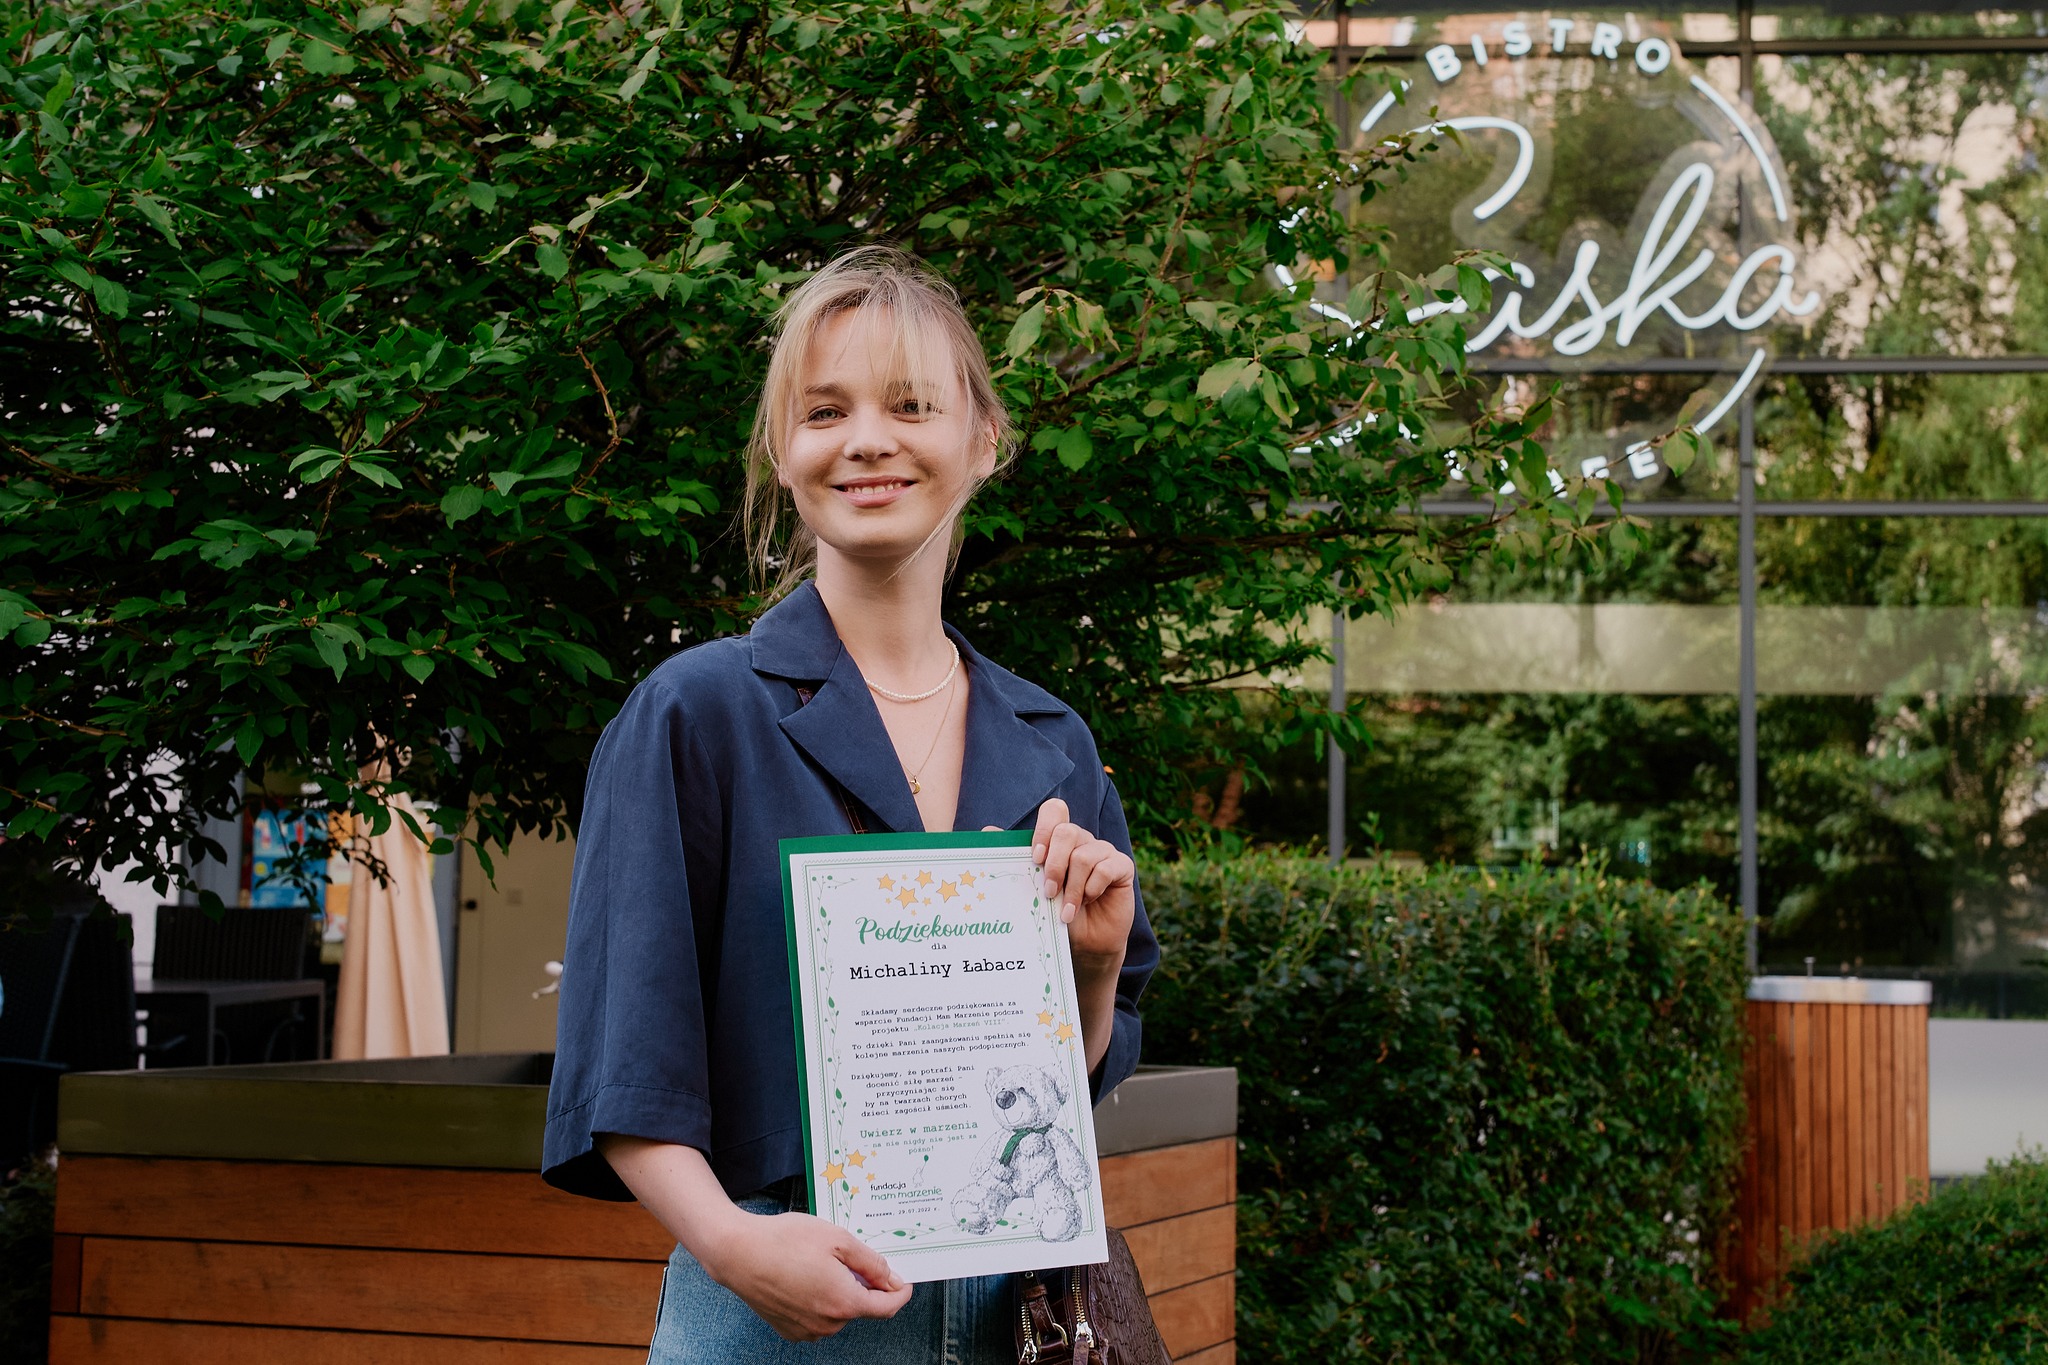 BISTRO
Baśka
CAFE
Podziękowania
dla
Michaliny Łabacz
Składamy serdeczne podziękowania za
wsparcie Fundacji Mam Marzenie podczas
projektu „Kolacja Marzeń VIII”.
To dzięki Pani zaangażowaniu spełnią się
kolejne marzenia naszych podopiecznych.
Dziękujemy, że potrafi Pani
docenić siłę marzeń –
przyczyniając się
by na twarzach chorych
dzieci zagościł uśmiech.
Uwierz w marzenia
– na nie nigdy nie jest za
późno!
fundacja
mam marzenie
www.mammarzenie.org
Warszawa, 29.07.2022 r.